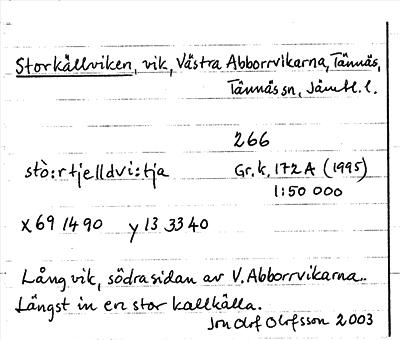 Storkällviken, vik, Västra Abborrvikarna, Tännäs,
Tännäs sn, Jämtl. l.
266
stò:rtjelldvi:tja Gr. k. 172 A (1995)
1:50 000
x 69 14 90 y 13 33 40
Lång vik, södra sidan av V. Abborrvikarna.
Längst in en stor kallkälla.
Jon Olof Olofsson 2003